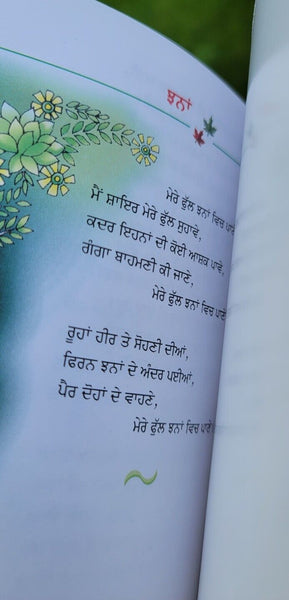 ਝਨਾਂ
ਮੇਰੇ ਫੁੱਲ ਝਨਾਂ ਵਿਚ ਪਾਣੇ
ਮੈਂ ਸ਼ਾਇਰ ਮੇਰੇ ਫੁੱਲ ਸੁਹਾਵੇ,
ਕਦਰ ਇਹਨਾਂ ਦੀ ਕੋਈ ਆਸ਼ਕ ਪਾਵੇ,
ਗੰਗਾ ਬਾਹਮਣੀ ਕੀ ਜਾਣੇ,
ਮੇਰੇ ਫੁੱਲ ਝਨਾਂ ਵਿਚ ਪਾਣੇ
ਰੂਹਾਂ ਹੀਰ ਤੇ ਸੋਹਣੀ ਦੀਆਂ,
ਫਿਰਨ ਝਨਾਂ ਦੇ ਅੰਦਰ ਪਈਆਂ,
ਪੈਰ ਦੋਹਾਂ ਦੇ ਵਾਹਣੇ,
ਮੇਰੇ ਫੁੱਲ ਝਨਾਂ ਵਿਚ ਪਾਣੇ